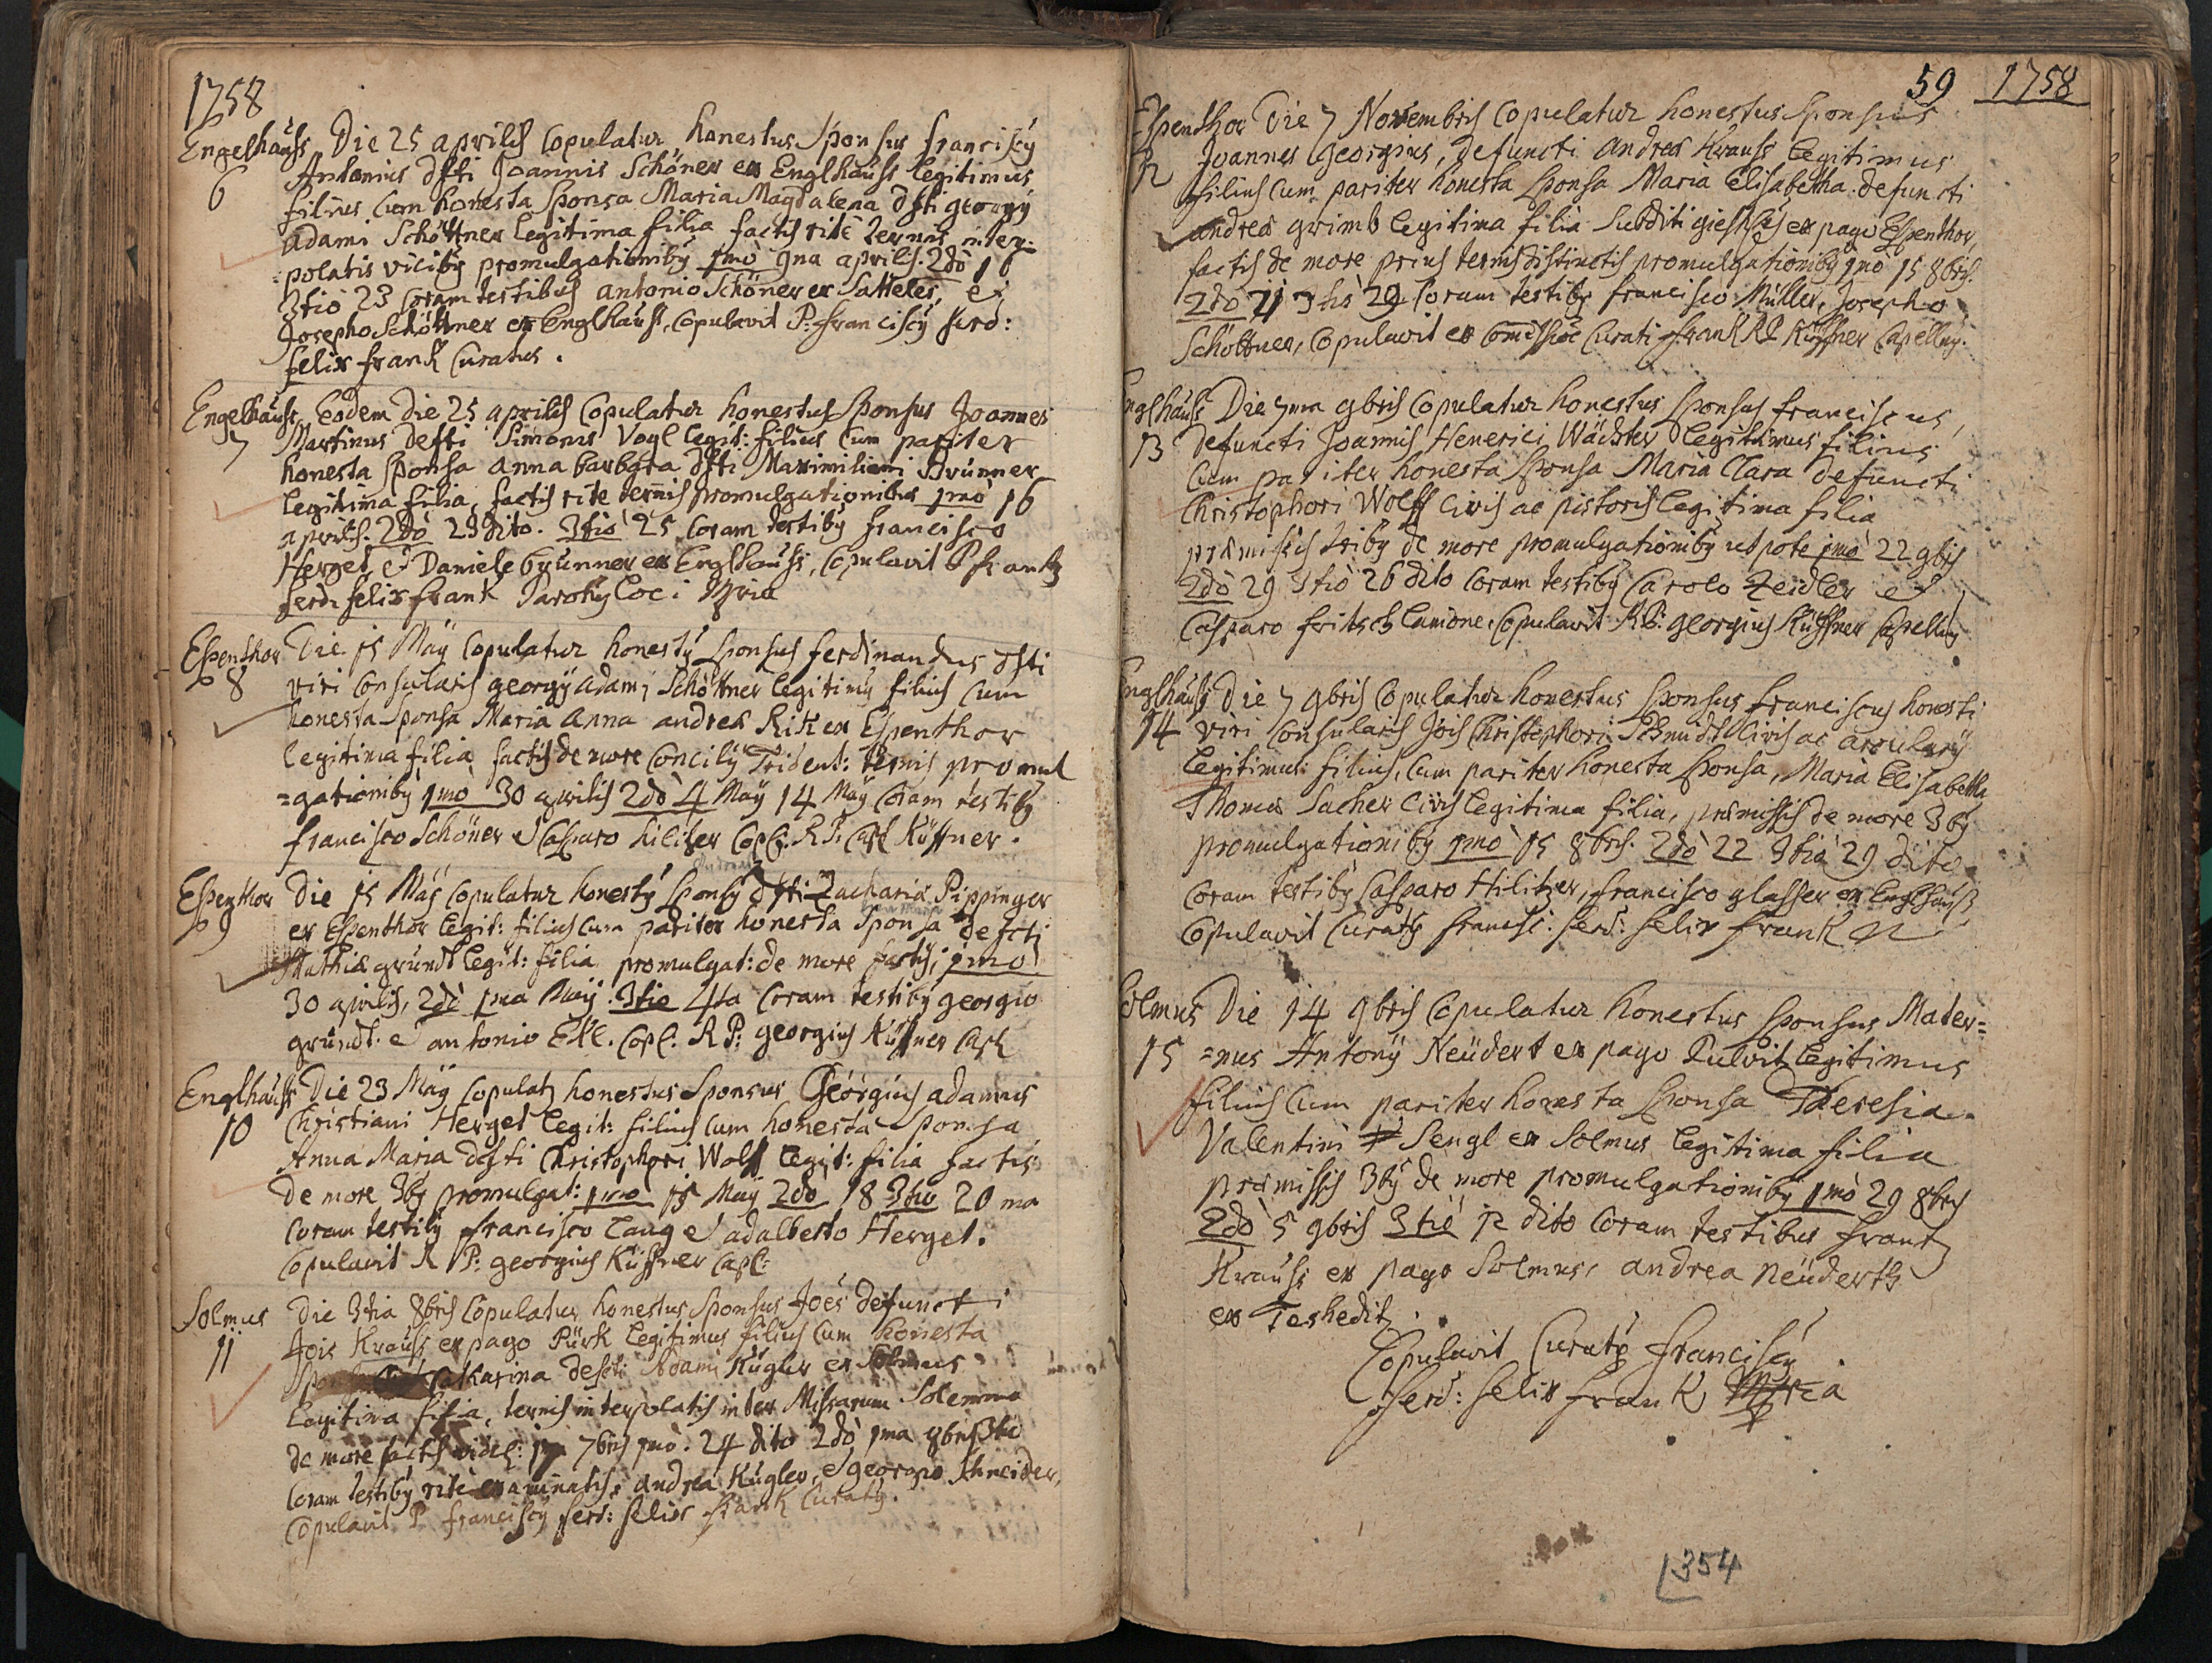 1758
Engelhauss Die 25 aprilis Copulatur honestus Sponsus franciscy
6 Antonius dfti Joannis Schöner ex Englhauss legitimus
filius cum honesta Sponsa Maria Magdalena dfti georgy
adami Schöttner legitima filia factis rite ternis inter=
=polatis vicibꝯ promulgationibꝯ 1mo 9na aprilis. 2do 16
3tio 23 Coram testibus antonio Schöner ex Satteles, et
Josepho Schöttner ex Englhauss, Copulavit P: franciscꝯ ferd:
felix frank Curatus.
Engelhauss Eodem die 25 aprilis Copulatur honestus Sponsus Joannes
7 Martinus defti Simonis Vogl legit: filius cum pariter
honesta Sponsa anna barbara dfti Maximiliani Brünner
legitima filia, factis rite ternis promulgationibus 1mo 16
aprilis. 2do 23 dito. 3tio 25 Coram testibꝯ francisco
Herget et Daniele brünner ex Englhauss, Copulavit P frantz
ferd: felix frank Parochꝯ loci
Espenthor Die 15 Maÿ Copulatur honestꝯ Sponsus ferdinandus dfti
8 viri Consularis georgÿ adami Schöttner legitimꝯ filius cum
honesta Sponsa Maria Anna andreæ Ritz ex Espenthor
legitima filia factis de more Concilÿ Trident: ternis promul
=gationibꝯ 1mo 30 aprilis 2do 4 Maÿ 14 Maÿ Coram testibꝯ
francisco Schöner et Casparo hilitzer Copl: R.P. Capl Küffner.
Espenthor Die 15 Maÿ Copulatur honestꝯ Sponsꝯ dfti Zachariæ Pippinger
9 ex Espenthor legit: filius cum pariter honesta Sponsa defcti
Mathiæ gründl legit: filia promulgat: de more factis, 1mo
30 aprilis, 2do 1ma Maÿ. 3tio 4ta Coram testibꝯ georgio
gründl. et antonio Ekl. Copl: R P: georgius Küffner Capl
Englhauss Die 23 Maÿ Copulatꝛ honestus Sponsus Georgius adamus
10 Christiani Herget legit: filius cum honesta Sponsa
Anna Maria defti Christophori Wolff legit: filia factis
de more 3bꝯ promulgat: 1mo 15 Maÿ 2do 18 3tio 20 ma
Coram testibꝯ francisco lang et adalberto Herget.
Copulavit R P: georgius Küffner Capl:
Solmus Die 3tia 8bris Copulatur honestus Sponsus Joes defuncti
11 Jois Krauss ex pago Pürk legitimus filius cum honesta
Catharina defcti Adami Kugler ex Solmus
legitima filia, ternis interpolatis inter Missarum Solemnia
de more factis videl: 17 7bris 1mo. 24 dito 2do 1ma 8bris 3tio
Coram testibꝯ rite examinatis, andrea Kugler, et georgio Schneider,
Copulavit P franciscꝯ ferd: felix frank Curatꝯ.
59 1758
Espenthor Die 7 Novembris Copulatur honestus Sponsus
12 Joannes Georgius, defuncti andreæ Krauss legitimus
filius cum pariter honesta Sponsa Maria Elisabetha defuncti
andreæ grimb legitima filia Subditi ex pago Espenthor,
factis de more prius ternis distinctis promulgationibꝯ 1mo 15 8bris.
2do 21 3tio 29 Coram testibꝯ francisco Müller, Josepho
Schöttner, Copulavit ex Comissioe Curati frank RP Küffner Capellanꝯ.
Englhauss Die 7ma 9bris Copulatur honestus Sponsus franciscus,
13 defuncti Joannis Henerici Wächter legitimus filius
cum pariter honesta Sponsa Maria Clara defuncti
Christophori Wolff Civis ac pistoris legitima filia
præmissis tribꝯ de more promulgationibꝯ utpote 1mo 22 9bris
2do 29 3tio 26 dito Coram testibꝯ Carolo Zeidler et
Casparo fritsch lanione. Copulavit RP: georgius Küffner Capellanꝯ
Englhauss Die 7 9bris Copulatur honestus Sponsus franciscus honesti
14 viri Consularis Jois Christophori Schmidt Civis ac arcularÿ
legitimus filius, cum pariter honesta Sponsa, Maria Elisabetha
Thomæ Sacher Civis legitima filia, præmissis de more 3bꝯ
promulgationibꝯ 1mo 15 8bris. 2do 22 3tio 29 dito
Coram testibꝯ Casparo Hilitzer, francisco glasser ex Englhauss
Copulavit Curatꝯ francisc: ferd: felix frank
Solmus Die 14 9bris Copulatur honestus Sponsus Mater=
15 =nus Antonÿ Neüdert ex pago legitimus
filius cum pariter honesta Sponsa Theresia
Valentini Sengl ex Solmus legitima filia
præmissis 3bꝯ de more promulgationibꝯ 1mo 29 8bris
2do 5 9bris 3tio 12 dito Coram testibus frantz
Krauss ex pago Solmus, andrea Neüderth
ex Tesheditz.
Copulavit Curatꝯ franciscꝯ
ferd: felix frank
354